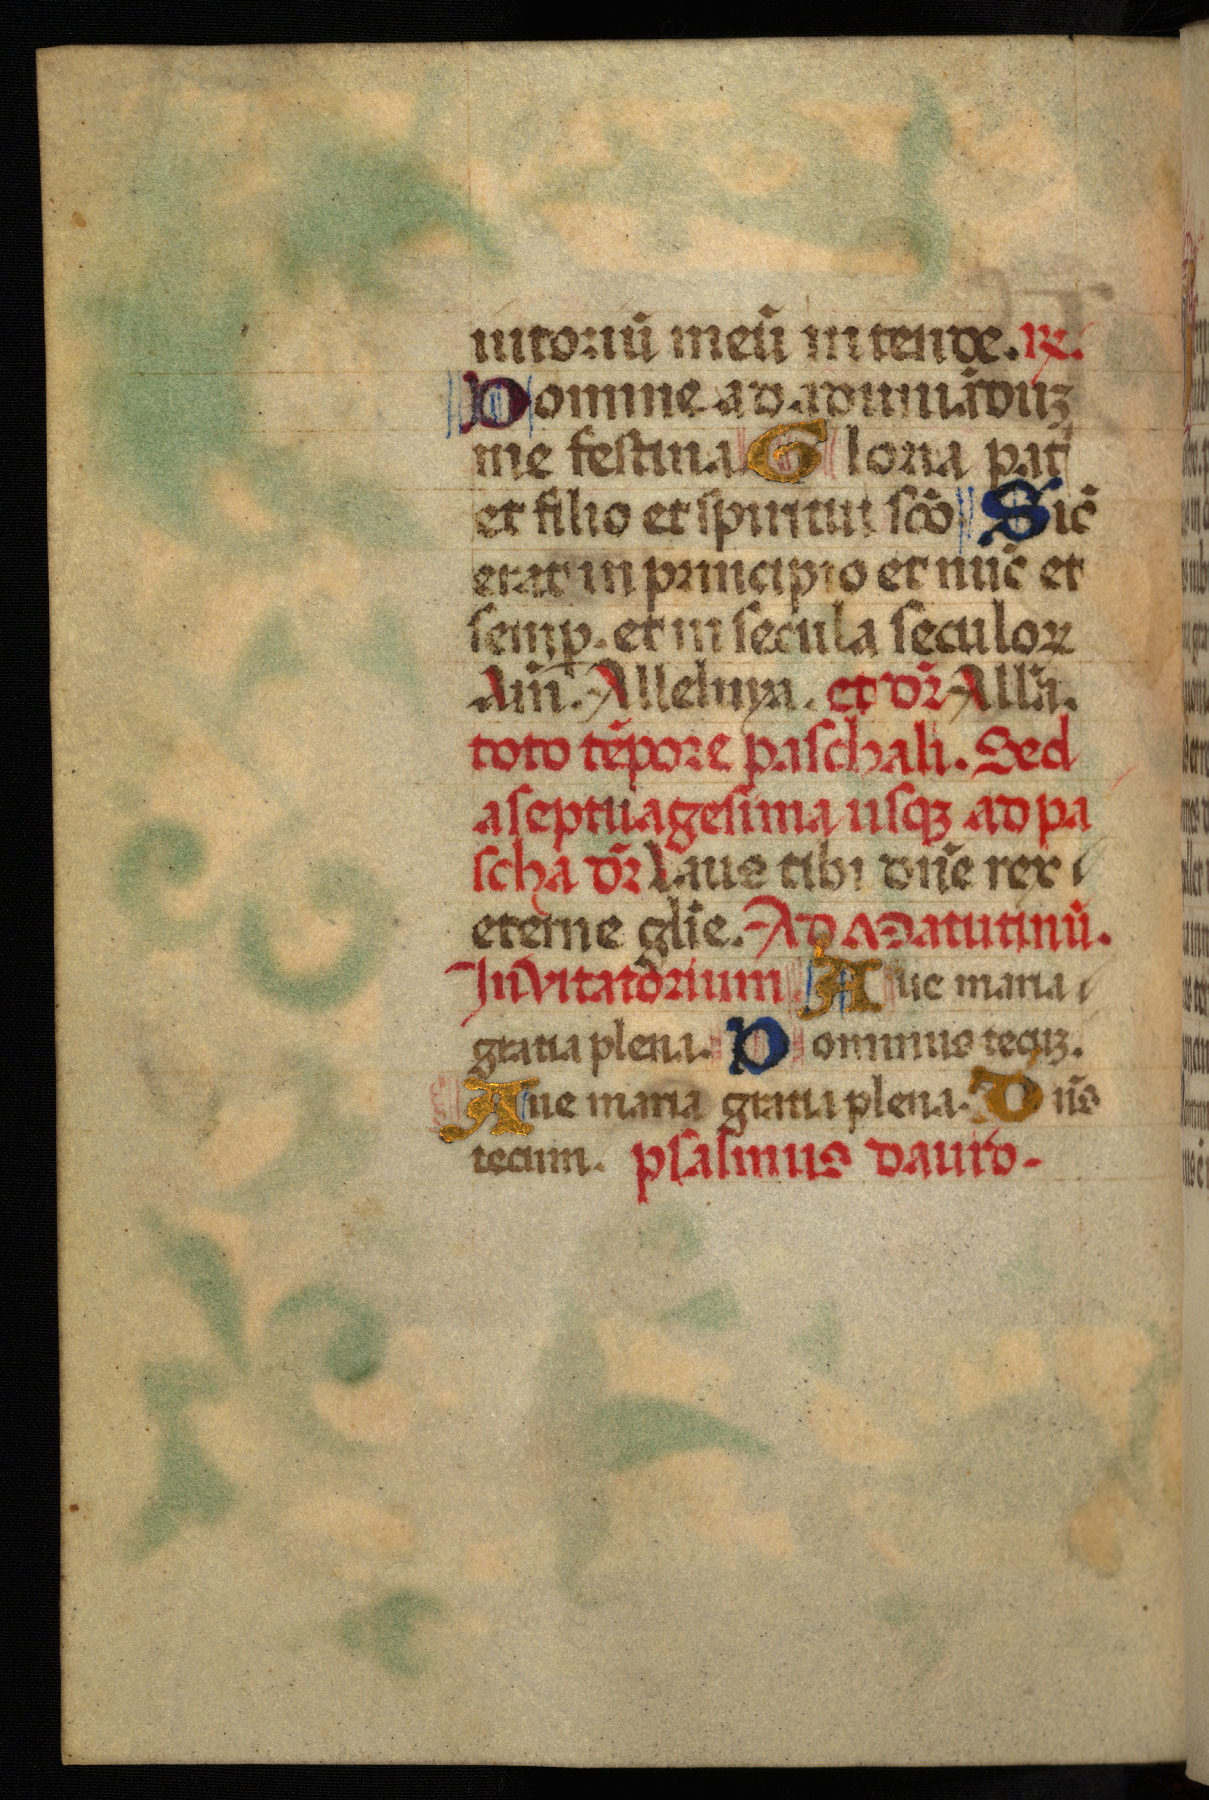 iutoriū meū in tende. re.
Domine ad adiuuādūz
me festina Gloria pat̄
et filio et spiritui scō Sic̄
erat in principio et nūc̄ et
semp. et in secula seculoꝝ
Am̄. Alleluya. et dr̄ Allā.
toto tēpore paschali. Sed
a septuagesima usqꝫ ad pa
scha dr̄ Laus tibi dn̄e rex
eterne glīe. Ad Matutinū.
Inuitatorium Aue maria
gratia plena. Dominus tecuꝫ.
Aue maria gratia plena. Dn̄s
tecum. psalmus dauid.